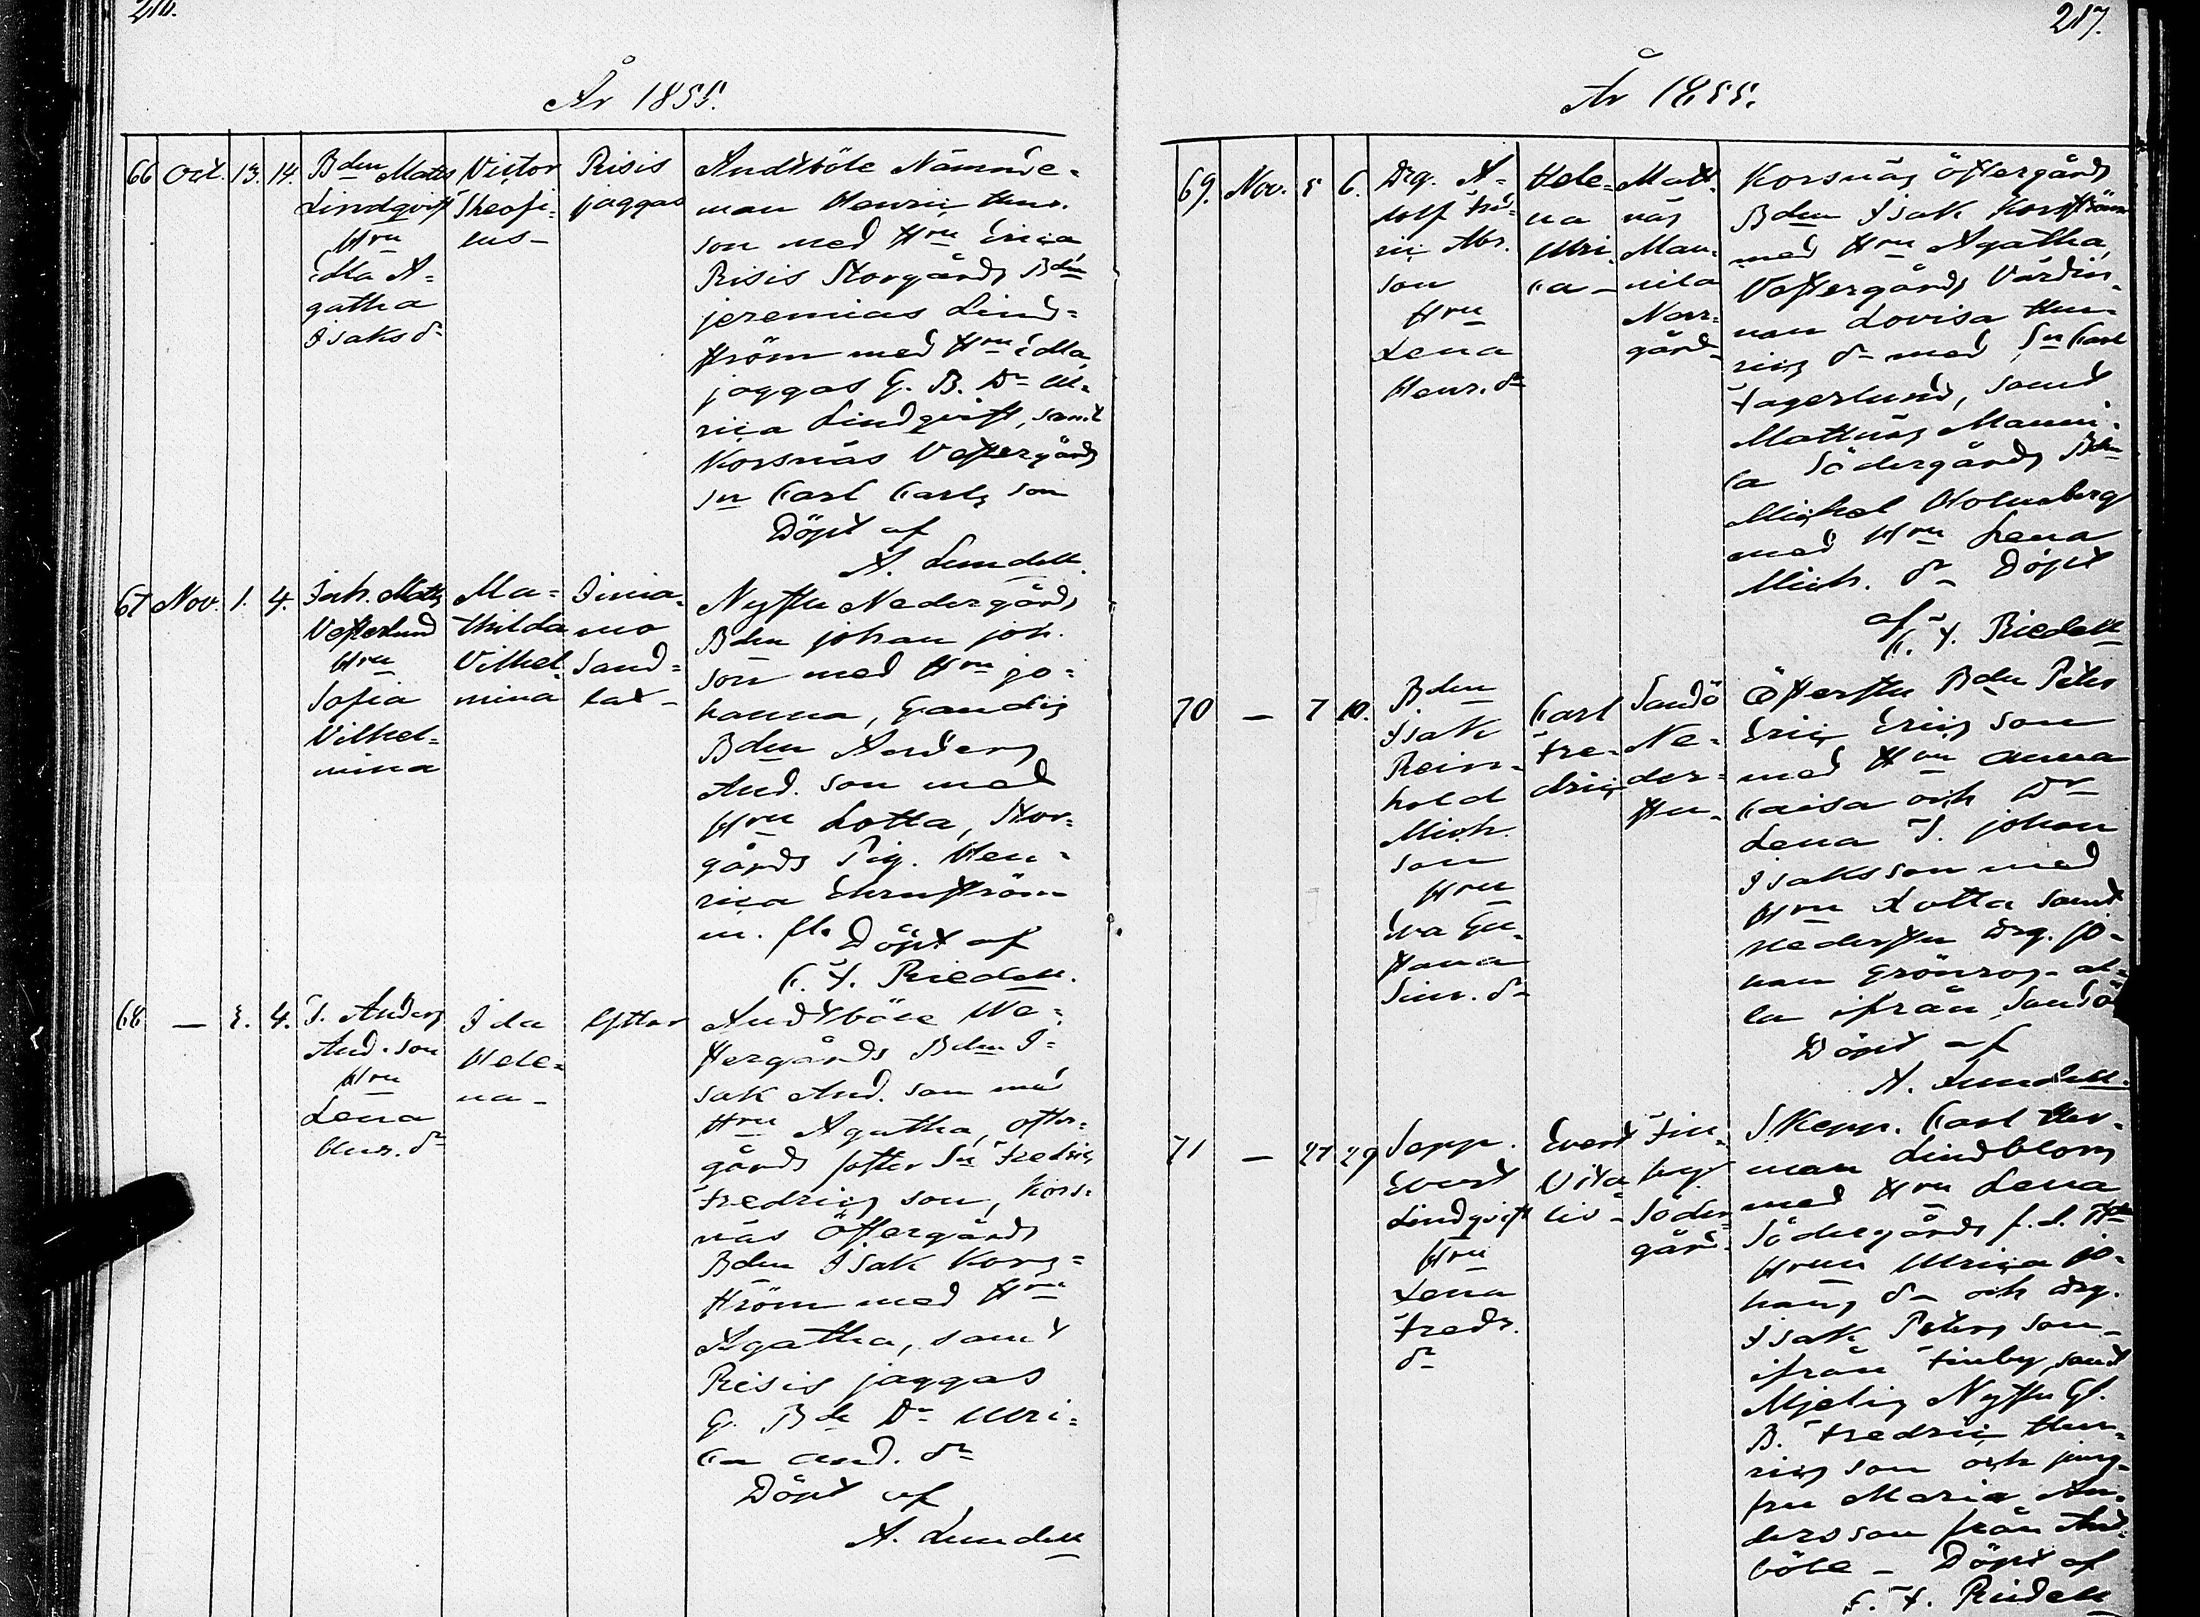 216.
År 1855.
66 Oct. 13. 14.
Bden Mats
Lindqvist
Hru
Edla A-
gatha
Isaks dr
Victor
Theofi-
lus-
Risis
jaggas
Andtböle Nämnde-
man Henric Hinr.
son med Hru Erica
Risis Storgårds Bden
jeremias Lind-
ström med Hru Edla
jaggas G. B. Dr Ul-
rica Lindqvist, samt
Korsnäs Vestergårds
Sn Carl Carls son
Döpt af
A. Lundell.
67 Nov. 1. 4.
Inh. Mats
Vesterlund
Hru
Sofia
Vilhel-
mina
Ma-
thilda
Vilhel-
mina
mo
Sand-
kat-
Nystu Nedergårds
Bden johan joh.
son med Hru jo-
hanna,
Bden Anders
And. son med
Hru Lotta, Stor-
gårds Pig. Hen-
rica Ehrnström
m. fl. Döpt af
C. F. Riedell.
68 — 3. 4.
T. Anders
And. son
Hru
Lena
Henr. dr
Ida
Hele-
na-
Andtböle We-
stergårds Bden I-
sak And. son med
Hru Agatha, öster-
gårds foster Sn Fredric
Fredrics son, Kors-
näs Östergårds
Bden Isak Kors-
ström med Hru
Agatha, samt
Risis jaggas
G. Bde Dr Ulri-
ca And. dr
Döpt af
A. Lundell
217.
År 1855.
69. Nov. 5 6.
Drg. A-
dolf Fred-
ric Abr.
son
Hru
Lena
Henr. dr
Hele-
na
Ulri-
ca-
Matt-
näs
Man-
nila
Norr-
gård-
Korsnäs östergårds
Bden Isak Korsström
med Hru Agatha,
Vestergårds Värdin-
nan Lovisa Hen-
rics dr med Sn Carl
Fagerlund, samt
Mattnäs Manni-
la Södergårds Bden
Michel Holmberg
med Hru Lena
Mich. dr Döpt
af
C. F. Riedell
70 — 7 10.
Bden
Isak
Rein-
hold
Mich.
son
Hru
Eva Gu-
stava
Sim. dr
Carl
Fre-
dric
Sandö
Ne-
der-
stu-
Öfverstu Bden Petter
Eric Erics son
med Hru Anna
Caisa och Dr
Lena T. johan
Isaksson med
Hru Lotta samt
Nederstu Drg. jo-
han Grönros- al-
la ifrån Sandö
Döpt af
A. Lundell.
71 — 27 29
Sepp.
Evert
Lindqvist
Hru
Lena
Fredr.
dr
Evert
Vita-
lis-
Fin-
by
Söder-
gård-
Skepp. Carl Her-
man Lindblom
med Hru Lena
Södergårds f. d.
Hrun Ulrica jo-
hans dr och Drg.
Isak Petters son-
ifrån Finby, samt
Mjelis Nystu Gl.
B. Fredric Hen-
rics son och jung-
fru Maria An-
dersson från And-
böle- Döpt af
C. F. Riedell